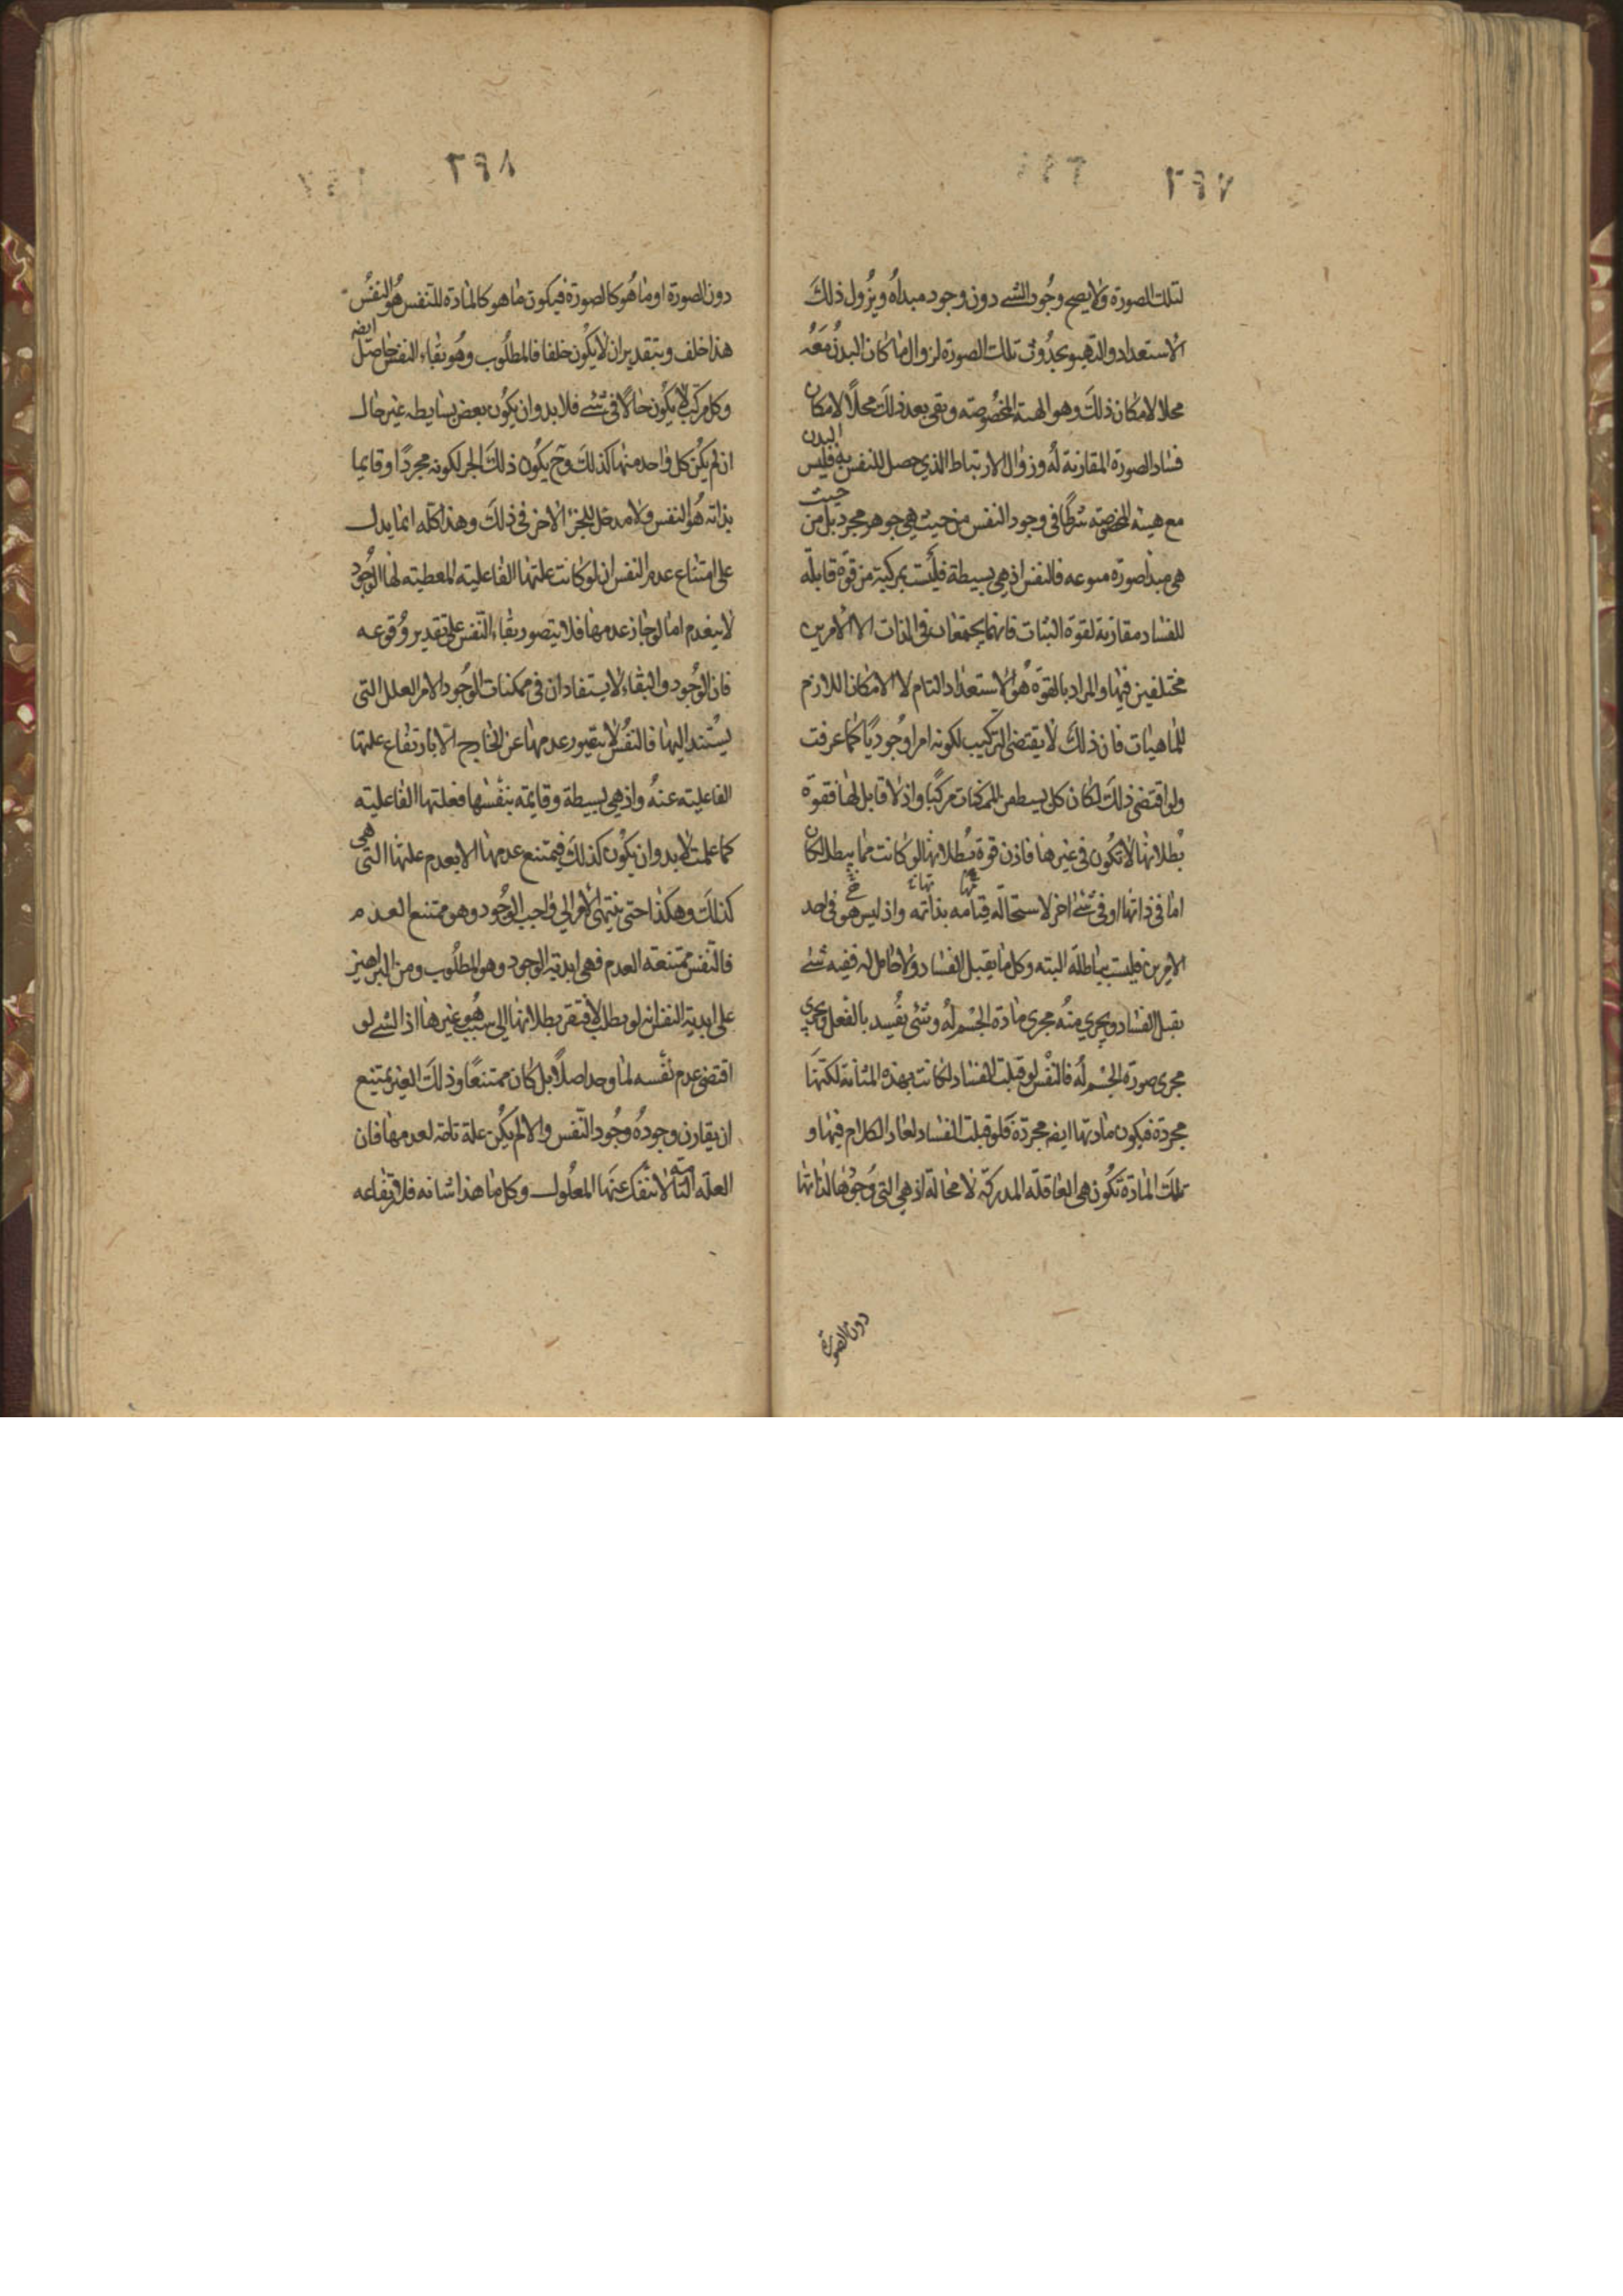 ٢٩٧
لتلك الصورة ولا يصح وجود الشے دون وجود مبداه ويزول ذلك
الاستعداد والتهيو بحدوث تلك الصورة لزوال ما كان البدن معه
محلا لامكان ذلك وهو الهيئة المخصوصة وبقى بعد ذلك محلا لامكان
فساد الصورة المقارنة له وزوال الارتباط الذي حصل للنفس به فليس البدن
مع هيئة المخصصة شرطا في وجود النفس من حيث هي جوهر مجرد بل من حيث
هي مبدا صورة منوعه فالنفس اذ هي بسيطة فليست بمركبة من قوة قابلة
للفساد مقارنة لقوة الثبات فانهما يجتمعان في الذات الا لامرين
مختلفين فيها والمراد بالقوة هو الاستعداد التام لا الامكان اللازم
للماهيات فان ذلك لا يقتضى التركيب لكونه امرا وجوديا كما عرفت
ولو اقتضى ذلك لكان كل بسيط من الممكنات مركبا واذ لا قابل لها فقوة
بطلانها لا تكون في غيرها فاذن قوة بطلانها لو كانت مما يبطل لكان
اما في ذاتها او في شئ اخر لاستحالة قيامه بذاته واذ ليس هو في احد
الامرين فليست بباطلة البته وكل ما يقبل الفساد ولا حامل له ففيه شئ
يقبل الفساد ويجري منه مجرى مادة الجسم له وشئ يفسد بالفعل ويجري
مجرى صورة الجسم له فالنفس لو قبلت الفساد لكانت بهذه المثابة لكنها
مجردة فيكون مادتها ايضه مجردة فلو قبلت الفساد لعاد الكلام فيها و
تلك المادة تكون هي العاقلة المدركة لا محالة اذ هي التي وجودها لذاتها
دون الصورة
٢٩٨
دون الصورة او ما هو كالصورة فيكون ما هو كالمادة للنفس هو النفس
هذا خلف وبتقدير ان لا يكون خلفا فالمطلوب وهو بقاء النفس حاصل ايضه
وكل مركب لا يكون حالا في شئ فلا بد وان يكون بعض بسايطه غير حال
ان لم يكن كل واحد منها كذلك وح يكون ذلك الجزء لكونه مجردا وقايما
بذاته هو النفس ولا مدخل للجزء الاخر في ذلك وهذا كله انما يدل
على امتناع عدم النفس ان لو كانت علتها الفاعلية المعطية لها الوجود
لا ينعدم اما لو جاز عدمها فلا يتصور بقاء النفس على تقدير وقوعه
فان الوجود والبقاء لا يستفادان في ممكنات الوجود الا من العلل التى
يستند اليها فالنفس لا يتصور عدمها عن الخارج الا بارتفاع علتها
الفاعلية عنه واذ هي بسيطة وقايمة بنفسها فعلتها الفاعلية
كما علمت لا بد وان يكون كذلك فيمتنع عدمها الا بعدم علتها التى هى
كذلك وهكذا حتى ينتهى الامر الى واجب الوجود وهو ممتنع العدم
فالنفس ممتنعة العدم فهي ابدية الوجود وهو المطلوب ومن البراهين
على ابدية النفس انه لو بطلت لافتقر بطلانها الى سبب هو غيرها اذ الشے لو
اقتضى عدم نفسه لما وجد اصلا بل كان ممتنعا وذلك الغير يمتنع
ان يقارن وجوده وجود النفس والا لم يكن علة تامة لعدمها فان
العلة التامة لا تنفك عنها المعلول وكل ما هذا شانه فلارتفاعه